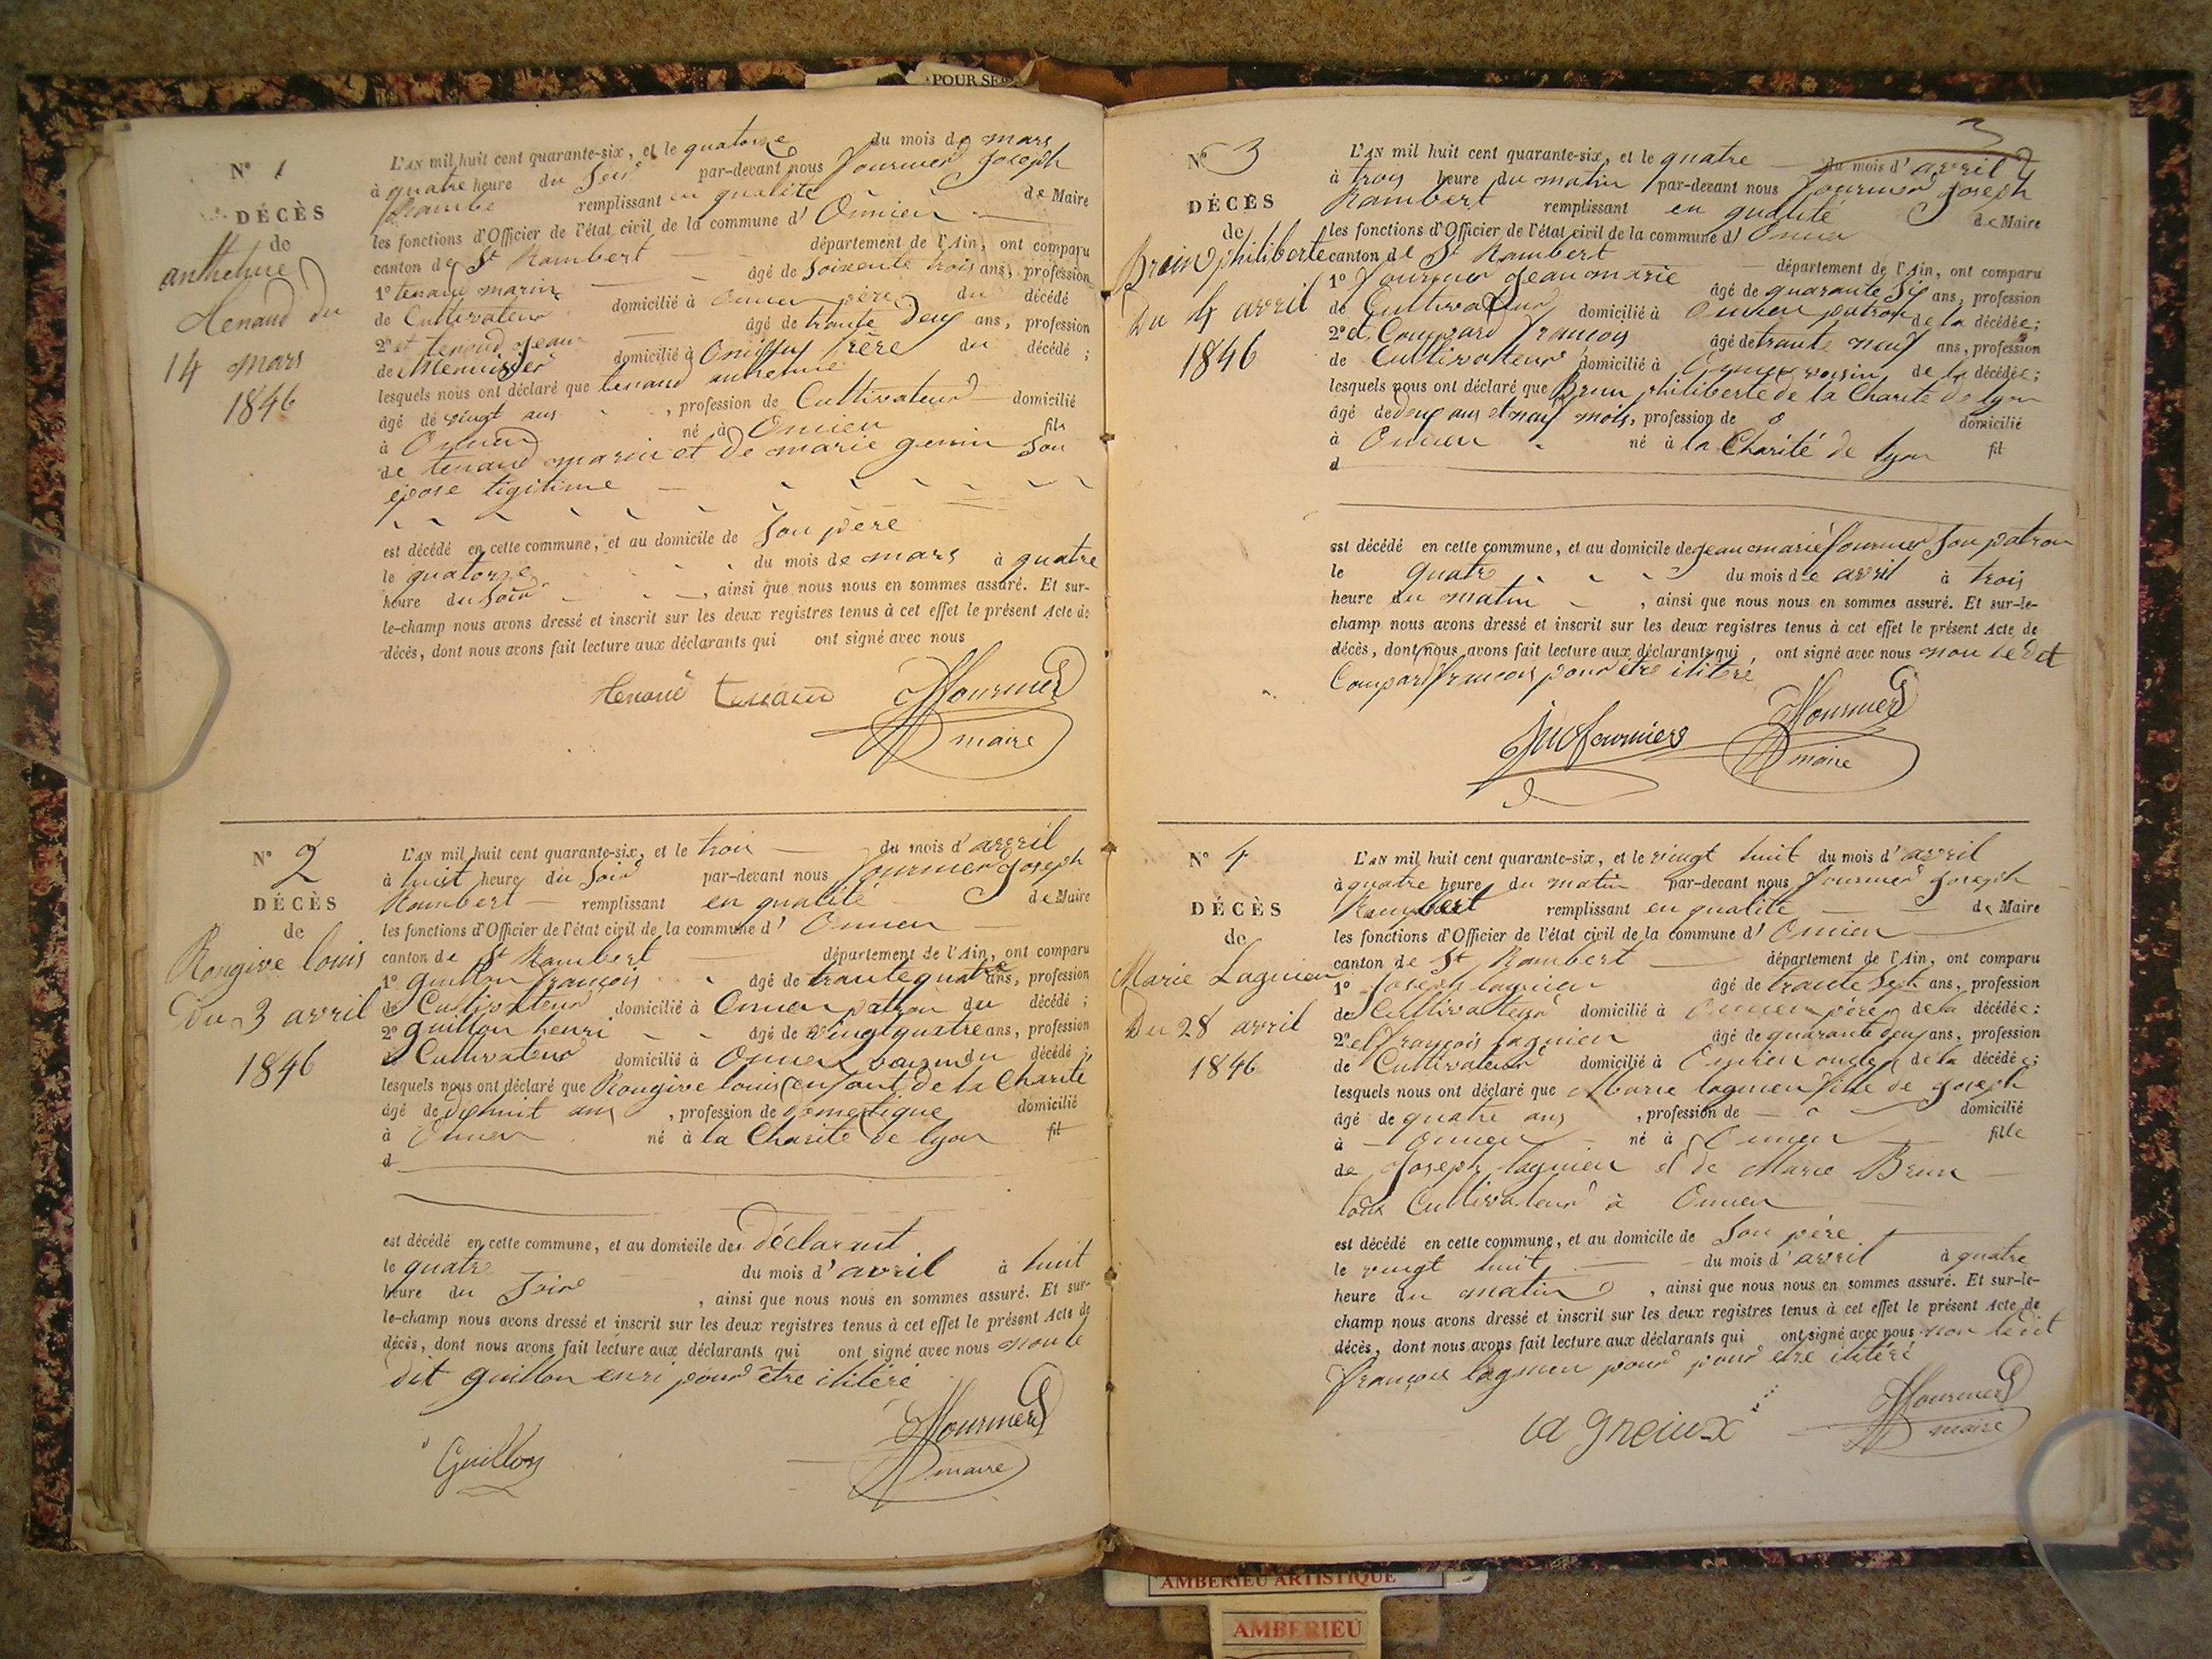 POUR SE
N° 1
DÉCÈS
de
anthelme
tenaud du
14 mars
1846
L'AN mil huit cent quarante-six, et le quatorze du mois de mars
à quatre heure du soir par-devant nous fournier Joseph
Rambe remplissant en qualité de Maire
les fonctions d'Officier de l'état civil de la commune d' Oncieu
canton de St Rambert département de l'Ain, ont comparu
1° tenaud marin âgé de soixente trois ans, profession
de Cultivateur domicilié à Oncieu père du décédé
2° et tenaud jean âgé de trante deux ans, profession
de Menuisier domicilié à frère du décédé ;
lesquels nous ont déclaré que tenaud anthelme
âgé de vingt ans , profession de Cultivateur domicilié
à Oncieu né à Oncieu fils
de tenaud marin et de marie genin son
epose ligitime
est décédé en cette commune, et au domicile de son père
le quatorze du mois de mars à quatre
heure du soir , ainsi que nous nous en sommes assuré. Et sur-
le-champ nous avons dressé et inscrit sur les deux registres tenus à cet effet le présent Acte de
décès, dont nous avons fait lecture aux déclarants qui ont signé avec nous
tenaud fournier
maire
N° 2
DÉCÈS
de
Rongive louis
Du 3 avril
1846
L'AN mil huit cent quarante-six, et le trois du mois d' avril
à huit heure du soir par-devant nous fournier Joseph
Rambert remplissant en qualité de Maire
les fonctions d'Officier de l'état civil de la commune d' Oncieu
canton de St Rambert département de l'Ain, ont comparu
1° guillon françois âgé de trante quatre ans, profession
de Cultivateur domicilié à Oncieu patron du décédé ;
2° guillon henri âgé de vingt quatre ans, profession
d Cultivateur domicilié à Oncieu voisin du décédé ;
lesquels nous ont déclaré que Rongive louis enfant de la Charité
âgé de dixhuit ans , profession de domestique domicilié
à Oncieu né à la Charité de lyon fil
d
est décédé en cette commune, et au domicile des déclarant
le quatre du mois d' avril à huit
heure du soir , ainsi que nous nous en sommes assuré. Et sur-
le-champ nous avons dressé et inscrit sur les deux registres tenus à cet effet le présent Acte de
décès, dont nous avons fait lecture aux déclarants qui ont signé avec nous non le
dit guillon enri pour être ilitéré
Guillon fournier
maire
3
N° 3
DÉCÈS
de
Brun philiberte
Du 4 avril
1846
L'AN mil huit cent quarante-six, et le quatre du mois d' avril
à trois heure du matin par-devant nous fournier Joseph
Rambert remplissant en qualité de Maire
les fonctions d'Officier de l'état civil de la commune d' Oncieu
canton de St Rambert département de l'Ain, ont comparu
1° fournier Jean marie âgé de quarante six ans, profession
de Cultivateur domicilié à Oncieu patron de la décédée ;
2° et Compard francois âgé de trante neuf ans, profession
de Cultivateur domicilié à Oncieu voisin de la décédée ;
lesquels nous ont déclaré que Brun philiberte de la Charité de lyon
âgé de deux ans et neuf mois, profession de domicilié
à Oncieu né à la Charité de lyon fil
d
est décédé en cette commune, et au domicile de jean marie fournier son patron
le quatre du mois de avril à trois
heure du matin , ainsi que nous nous en sommes assuré. Et sur-le-
champ nous avons dressé et inscrit sur les deux registres tenus à cet effet le présent Acte de
décès, dont nous avons fait lecture aux déclarants qui ont signé avec nous non le dit
Compard francois pour être ilitéré
fourniers fournier
maire
N° 4
DÉCÈS
de
Marie Lagnieu
Du 28 avril
1846
L'AN mil huit cent quarante-six, et le vingt huit du mois d' avril
à quatre heure du matin par-devant nous fournier Joseph
Rambert remplissant en qualité de Maire
les fonctions d'Officier de l'état civil de la commune d' Oncieu
canton de St Rambert département de l'Ain, ont comparu
1° Joseph lagnieu âgé de trante sept ans, profession
de Cultivateur domicilié à Oncieu père de la décédée ;
2° et françois lagnieu âgé de quarante deux ans, profession
de Cultivateur domicilié à Oncieu oncle de la décédée ;
lesquels nous ont déclaré que Marie lagnieu fille de Joseph
âgé de quatre ans , profession de domicilié
à Oncieu né à Oncieu fille
de Joseph lagnieu et de Marie Brun
tous Cultivateur à Oncieu
est décédé en cette commune, et au domicile de son père
le vingt huit du mois d' avril à quatre
heure du matin , ainsi que nous nous en sommes assuré. Et sur-le-
champ nous avons dressé et inscrit sur les deux registres tenus à cet effet le présent Acte de
décès, dont nous avons fait lecture aux déclarants qui ont signé avec nous non ledit
françois lagnieu pour pour etre ilitéré
la gneiux fournier
maire
AMBERIEU ARTISTIQUE
AMBERIEU